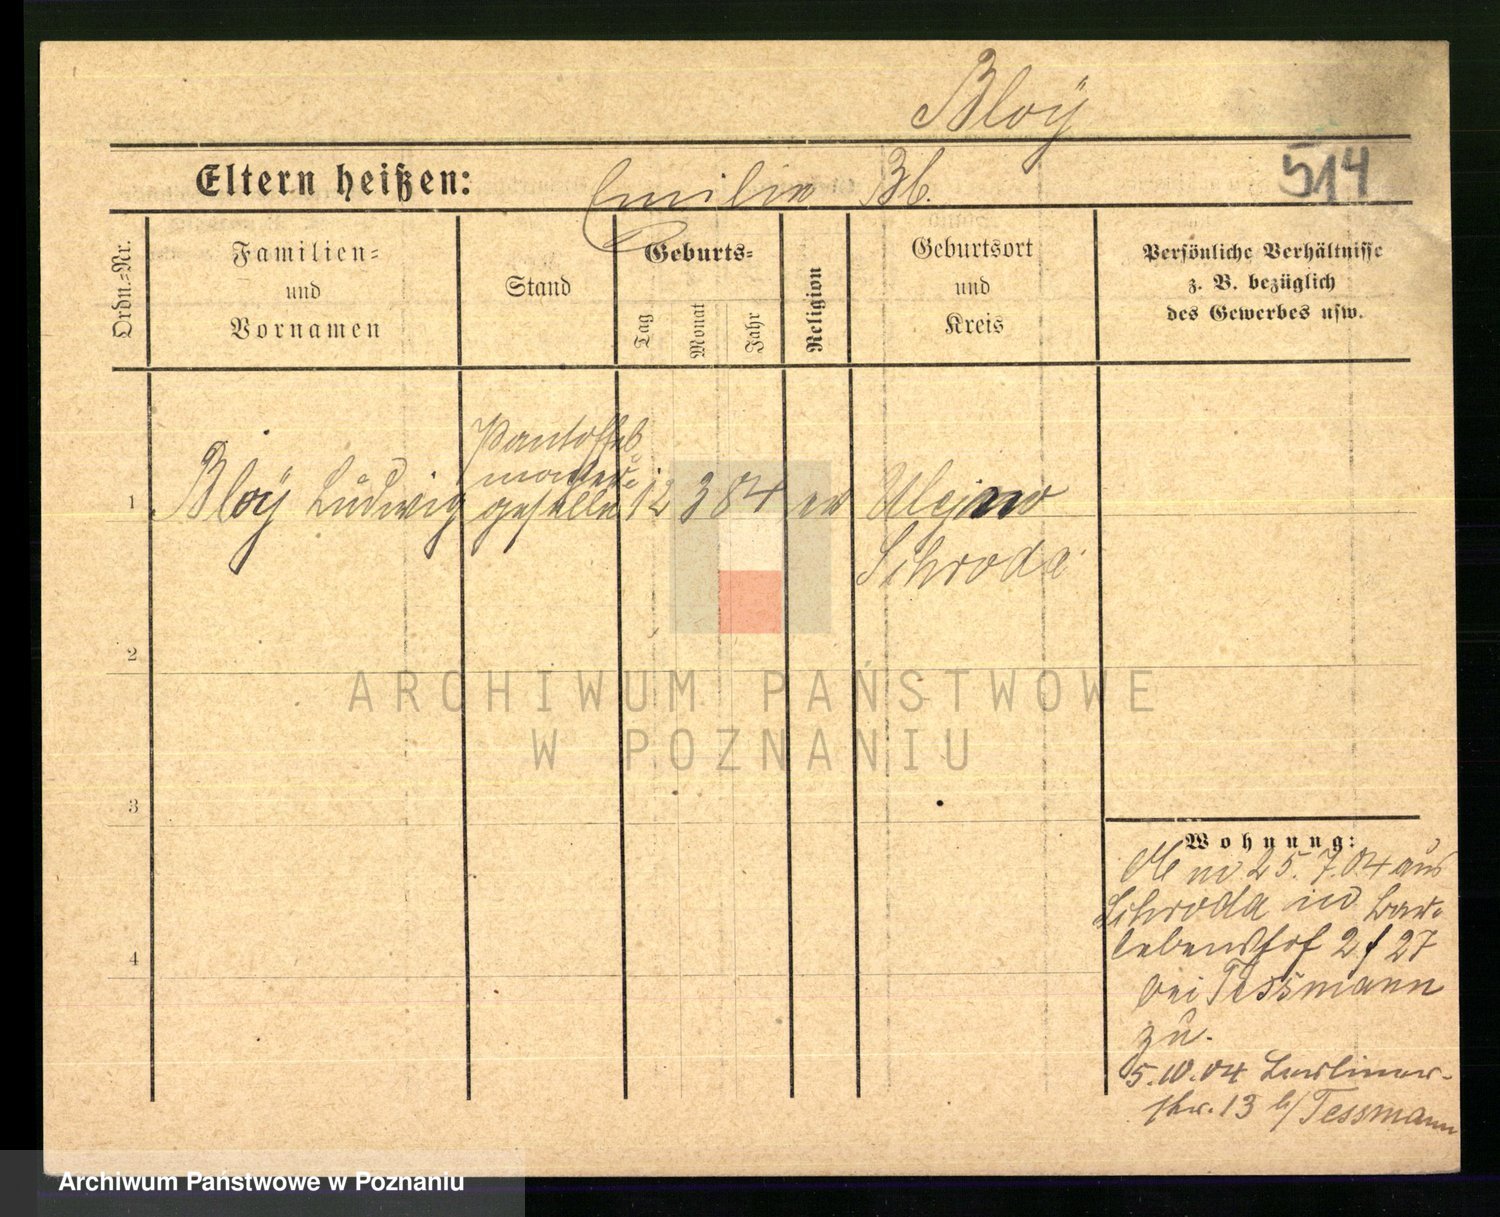 Bloÿ
514
Eltern heißen: Emilie Bl.
Ordn.-Nr.
Familien-
und
Vornamen
Stand
Geburts-
Tag
Monat
Jahr
Religion
Geburtsort
und
Kreis
Persönliche Verhältnisse
z. B. bezüglich
des Gewerbes usw.
Pantoffel
macher
1 Bloÿ Ludwig geselle 12 3 84 ev Ulejno
Schroda
2
ARCHIWUM PAŃSTWOWE
W POZNANIU
3
Wohnung:
25.7.04 aus
Schroda in
4
lebenshof 2 / 27
bei Tessmann
zu.
5.10.04 Berliner-
str. 13 b/ Tessmann
Archiwum Państwowe w Poznaniu